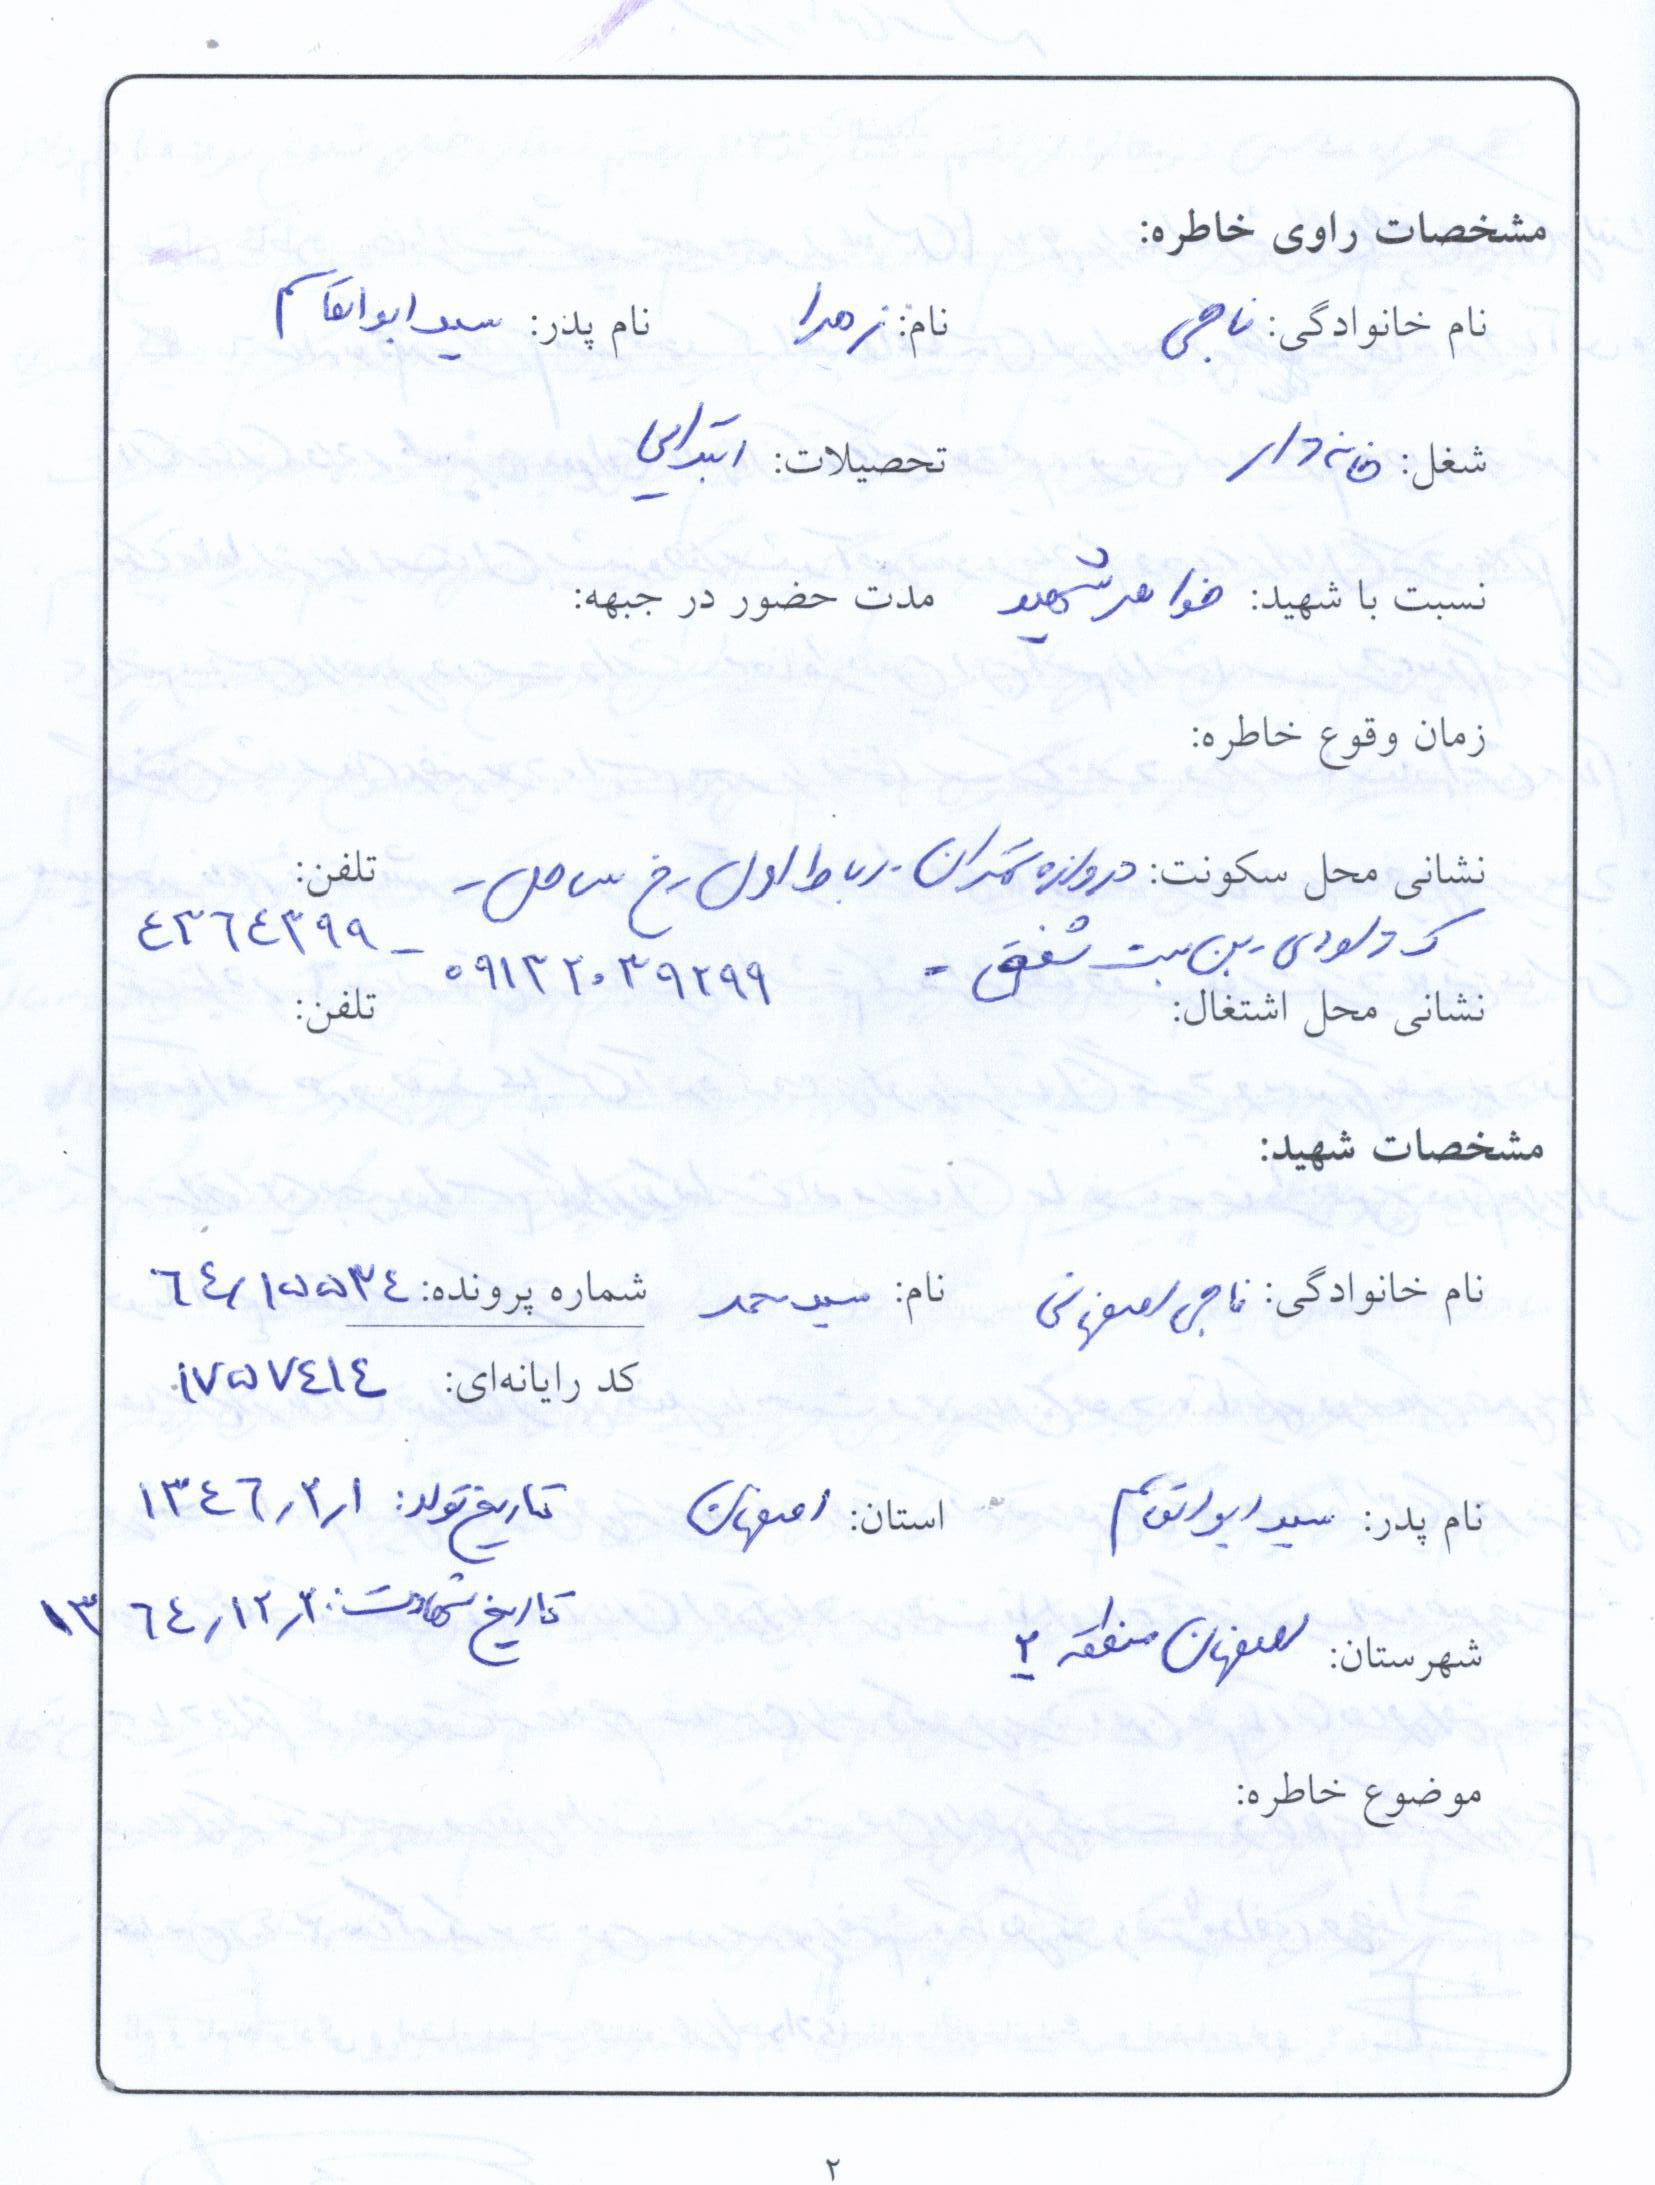 مشخصات راوی خاطره:
نام خانوادگی: ناجی نام: زهرا نام پدر: سید ابوالقاسم
شغل: خانه دار تحصیلات: ابتدایی
نسبت با شهید: خواهر شهید مدت حضور در جبهه:
زمان وقوع خاطره:
نشانی محل سکونت: دروازه تهران - رباط اول - خ ساحل - تلفن:
ک داودی - بن بست شفق - ۰۹۱۳۲۰۳۹۲۹۹ - ۴۳۶۴۳۹۹
نشانی محل اشتغال: تلفن:
مشخصات شهید:
نام خانوادگی: ناجی اصفهانی نام: سید محمد شماره پرونده: ۶۴/۱۵۵۳۴
کد رایانه‌ای: ۱۷۵۷۴۱۴
نام پدر: سید ابوالقاسم استان: اصفهان تاریخ تولد: ۱۳۴۶/۲/۱
شهرستان: اصفهان منطقه ۲ تاریخ شهادت: ۱۳۶۴/۱۲/۲
موضوع خاطره:
۲